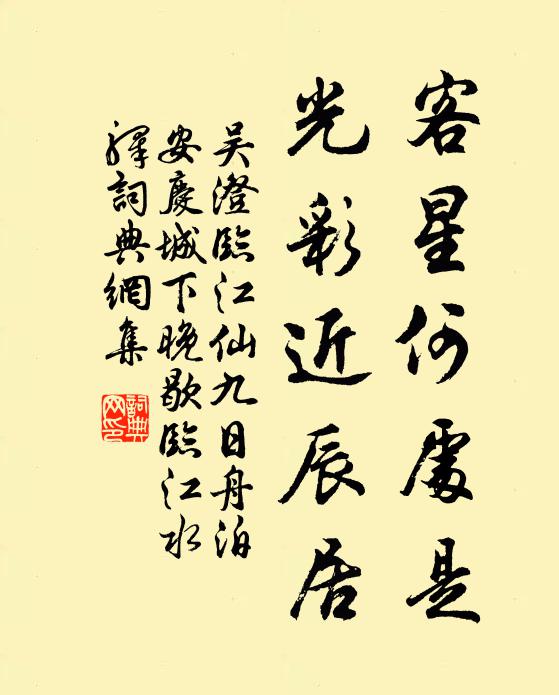 客星何處是
光彩近辰居
吴澄臨江仙九日舟泊
安慶城下晚歇臨江水
驛詞典網集
詞典
网印